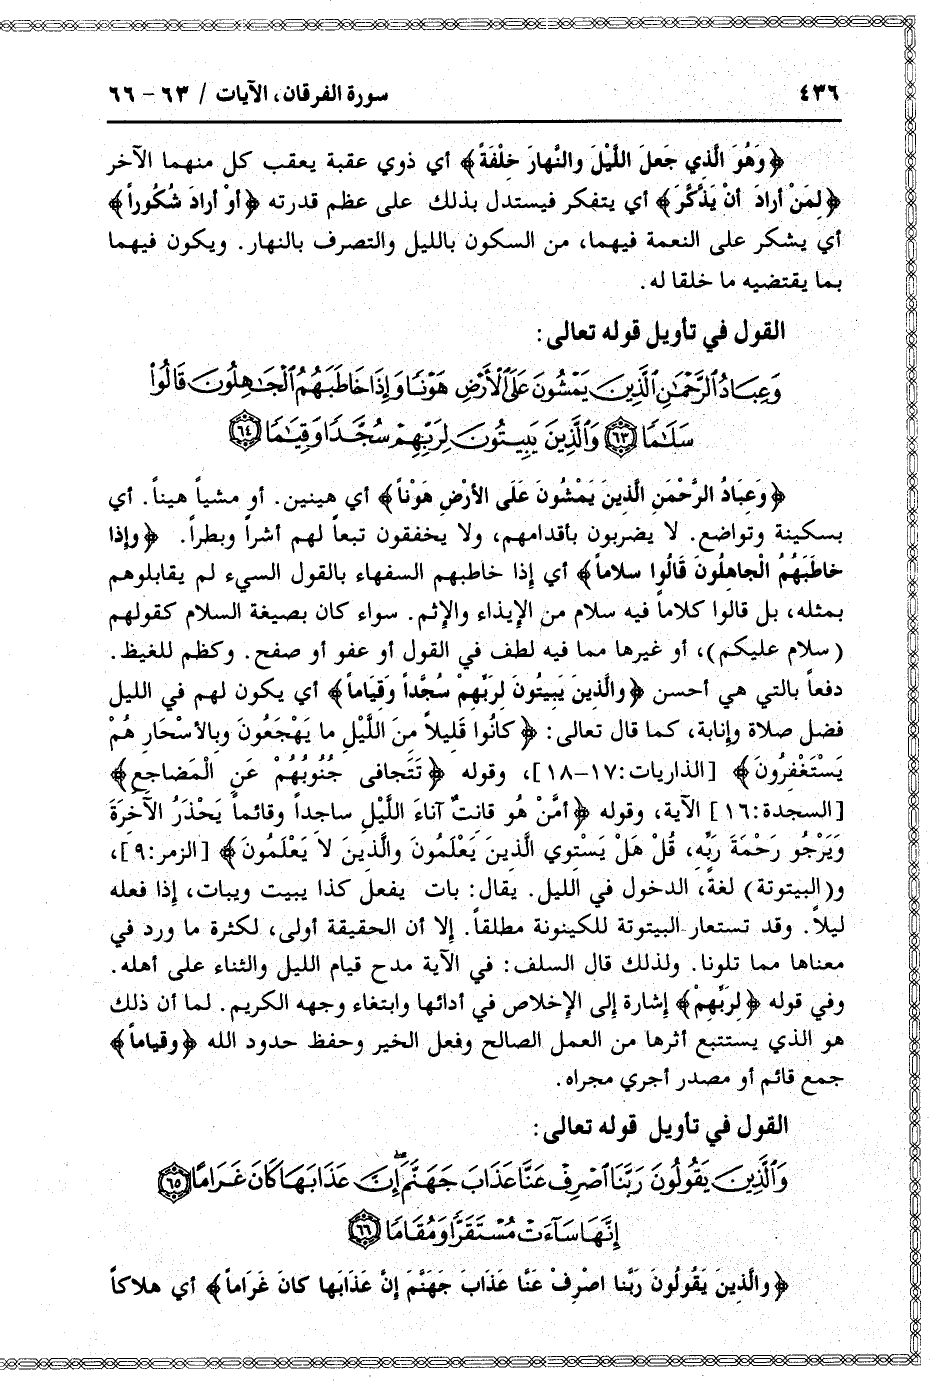 ٤٣٦ سورة الفرقان، الآيات / ٦٣ - ٦٦
﴿وَهُوَ الَّذِي جَعلَ اللَّيْلَ والنَّهارَ خِلْفَةً﴾ أي ذوي عقبة يعقب كل منهما الآخر
﴿لِمَنْ أرادَ أنْ يَذَّكَّرَ﴾ أي يتفكر فيستدل بذلك على عظم قدرته ﴿أوْ أرادَ شُكُوراً﴾
أي يشكر على النعمة فيهما، من السكون بالليل والتصرف بالنهار. ويكون فيهما
بما يقتضيه ما خلقا له.
القول في تأويل قوله تعالى:
وَعِبَادُ ٱلرَّحْمَٰنِ ٱلَّذِينَ يَمْشُونَ عَلَى ٱلْأَرْضِ هَوْنًا وَإِذَا خَاطَبَهُمُ ٱلْجَٰهِلُونَ قَالُوا۟
سَلَٰمًا ﴿٦٣﴾ وَٱلَّذِينَ يَبِيتُونَ لِرَبِّهِمْ سُجَّدًا وَقِيَٰمًا ﴿٦٤﴾
﴿وَعِبَادُ الرَّحْمَنِ الَّذينَ يَمْشُونَ عَلَى الأرْضِ هَوْناً﴾ أي هينين. أو مشياً هيناً. أي
بسكينة وتواضع. لا يضربون بأقدامهم، ولا يخفقون تبعاً لهم أشراً وبطراً. ﴿وإذا
خاطَبَهُمُ الْجاهِلُونَ قَالُوا سلاماً﴾ أي إذا خاطبهم السفهاء بالقول السيء لم يقابلوهم
بمثله، بل قالوا كلاماً فيه سلام من الإيذاء والإثم. سواء كان بصيغة السلام كقولهم
(سلام عليكم)، أو غيرها مما فيه لطف في القول أو عفو أو صفح. وكظم للغيظ.
دفعاً بالتي هي أحسن ﴿والَّذينَ يَبِيتُونَ لِرَبِّهِمْ سُجَّداً وَقِيَاماً﴾ أي يكون لهم في الليل
فضل صلاة وإنابة، كما قال تعالى: ﴿كانُوا قَلِيلاً مِنَ اللَّيْلِ ما يَهْجَعُونَ وبالأسْحَارِ هُمْ
يَسْتَغْفِرُونَ﴾ [الذاريات:١٧-١٨]، وقوله ﴿تَتَجافى جُنُوبُهُمْ عَنِ الْمَضاجِعِ﴾
[السجدة:١٦] الآية، وقوله ﴿أمَّنْ هُو قانتٌ آناءَ اللَّيْلِ ساجداً وقائماً يَحْذَرُ الآخِرَةَ
وَيَرْجُو رَحْمَةَ رَبِّهِ، قُلْ هَلْ يَسْتوِي الَّذينَ يَعْلَمُونَ والَّذينَ لا يَعْلَمُونَ﴾ [الزمر:٩]،
و(البيتوتة) لغةً، الدخول في الليل. يقال: بات يفعل كذا يبيت ويبات، إذا فعله
ليلاً. وقد تستعار البيتوتة للكينونة مطلقاً. إلا أن الحقيقة أولى، لكثرة ما ورد في
معناها مما تلونا. ولذلك قال السلف: في الآية مدح قيام الليل والثناء على أهله.
وفي قوله ﴿لِرَبِّهِمْ﴾ إشارة إلى الإخلاص في أدائها وابتغاء وجهه الكريم. لما أن ذلك
هو الذي يستتبع أثرها من العمل الصالح وفعل الخير وحفظ حدود الله ﴿وقياماً﴾
جمع قائم أو مصدر أجري مجراه.
القول في تأويل قوله تعالى:
وَٱلَّذِينَ يَقُولُونَ رَبَّنَا ٱصْرِفْ عَنَّا عَذَابَ جَهَنَّمَ ۖ إِنَّ عَذَابَهَا كَانَ غَرَامًا ﴿٦٥﴾
إِنَّهَا سَآءَتْ مُسْتَقَرًّا وَمُقَامًا ﴿٦٦﴾
﴿والَّذينَ يَقُولُونَ رَبَّنا اصْرِفْ عَنَّا عَذَابَ جَهَنَّمَ إنَّ عَذَابَها كانَ غَرَاماً﴾ أي هلاكاً